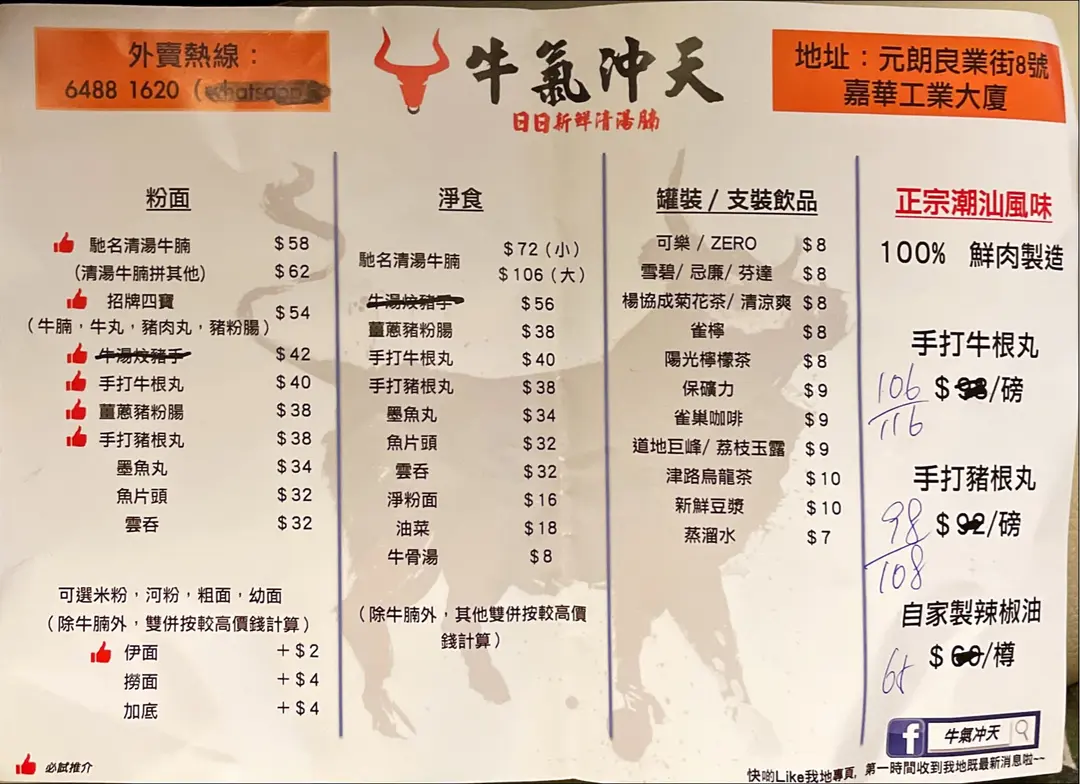 外賣熱線：
6488 1620（whatsapp）
牛氣沖天
日日新鮮清湯腩
地址：元朗良業街8號
嘉華工業大廈
粉面
馳名清湯牛腩 $58
(清湯牛腩拼其他) $62
招牌四寶 $54
（牛腩，牛丸，豬肉丸，豬粉腸）
牛湯炆豬手 $42
手打牛根丸 $40
薑蔥豬粉腸 $38
手打豬根丸 $38
墨魚丸 $34
魚片頭 $32
雲吞 $32
可選米粉，河粉，粗面，幼面
（除牛腩外，雙併按較高價錢計算）
伊面 +$2
撈面 +$4
加底 +$4
必試推介
淨食
馳名清湯牛腩 $72（小）
$106（大）
牛湯炆豬手 $56
薑蔥豬粉腸 $38
手打牛根丸 $40
手打豬根丸 $38
墨魚丸 $34
魚片頭 $32
雲吞 $32
淨粉面 $16
油菜 $18
牛骨湯 $8
（除牛腩外，其他雙併按較高價
錢計算）
罐裝 / 支裝飲品
可樂 / ZERO $8
雪碧/ 忌廉/ 芬達 $8
楊協成菊花茶/ 清涼爽 $8
雀檸 $8
陽光檸檬茶 $8
保礦力 $9
雀巢咖啡 $9
道地巨峰/ 荔枝玉露 $9
津路烏龍茶 $10
新鮮豆漿 $10
蒸溜水 $7
正宗潮汕風味
100% 鮮肉製造
手打牛根丸
106 $98/磅
116
手打豬根丸
98 $92/磅
108
自家製辣椒油
65 $60/樽
f 牛氣沖天
快啲Like我地專頁，第一時間收到我地既最新消息啦~~